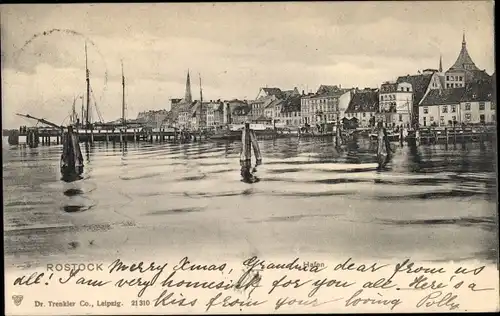 ROSTOCK
Hafen
Merry Xmas, Grandma dear from us
all! I am very homesick for you all. Here's a
kiss from your loving Polly
Dr. Trenkler Co., Leipzig. 21 310